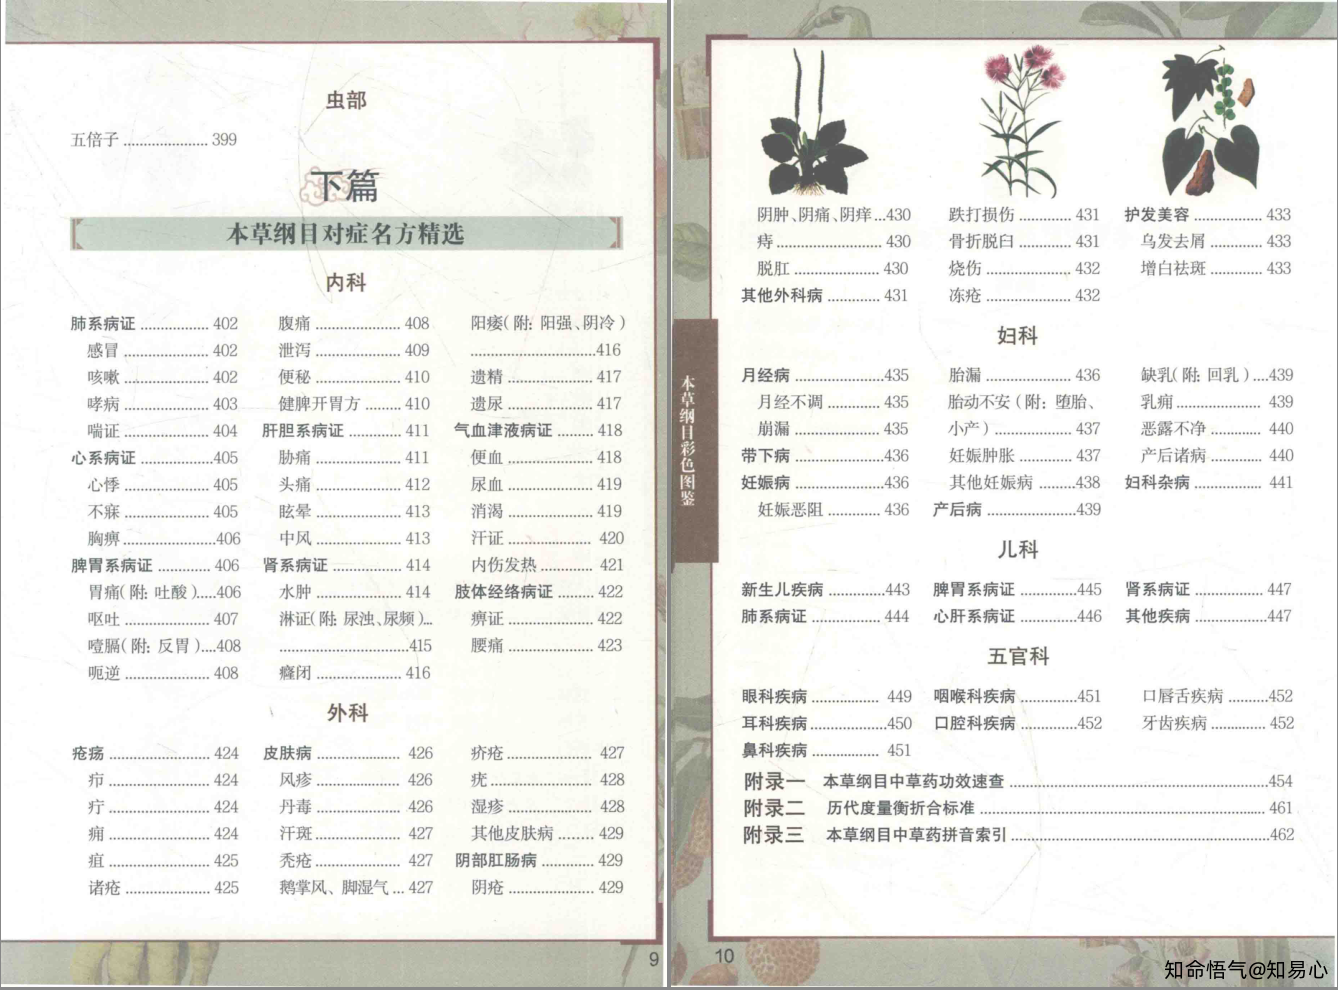 虫部
五倍子 ..................... 399
下篇
本草纲目对症名方精选
内科
肺系病证 ................. 402
感冒 ..................... 402
咳嗽 ..................... 402
哮病 ..................... 403
喘证 ..................... 404
心系病证 ..................405
心悸 ..................... 405
不寐 ..................... 405
胸痹.......................406
脾胃系病证 ............. 406
胃痛(附:吐酸).....406
呕吐 ..................... 407
噎膈(附:反胃)....408
呃逆 ..................... 408
腹痛 ..................... 408
泄泻 ..................... 409
便秘 ..................... 410
健脾开胃方 ......... 410
肝胆系病证 ............. 411
胁痛 ..................... 411
头痛 ..................... 412
眩晕 ..................... 413
中风 ..................... 413
肾系病证 ................. 414
水肿 ..................... 414
淋证(附:尿浊、尿频)...
................................415
癃闭 ..................... 416
阳痿(附:阳强、阴冷)
...............................416
遗精 ..................... 417
遗尿 ..................... 417
气血津液病证 ......... 418
便血 ..................... 418
尿血 ..................... 419
消渴 ..................... 419
汗证 ..................... 420
内伤发热 .................... 421
肢体经络病证 ......... 422
痹证 ..................... 422
腰痛 ..................... 423
外科
疮疡 ......................... 424
疖 ......................... 424
疔 ......................... 424
痈 ......................... 424
疽 ......................... 425
诸疮 ..................... 425
皮肤病 ..................... 426
风疹 ..................... 426
丹毒 ..................... 426
汗斑 ..................... 427
秃疮 ..................... 427
鹅掌风、脚湿气 ... 427
疥疮 ..................... 427
疣 ......................... 428
湿疹 ..................... 428
其他皮肤病 ......... 429
阴部肛肠病 ............. 429
阴疮 ..................... 429
9
阴肿、阴痛、阴痒...430
痔 .......................... 430
脱肛 ..................... 430
其他外科病 ............. 431
跌打损伤 ............. 431
骨折脱臼 ............. 431
烧伤 ..................... 432
冻疮 ..................... 432
护发美容 ................. 433
乌发去屑 ............. 433
增白祛斑 ............. 433
本草纲目彩色图鉴
妇科
月经病 ......................435
月经不调 ............. 435
崩漏 ..................... 435
带下病 ......................436
妊娠病 ......................436
妊娠恶阻 ............. 436
胎漏 ..................... 436
胎动不安(附:堕胎、
小产)..................... 437
妊娠肿胀 ............. 437
其他妊娠病 .........438
产后病 ......................439
缺乳(附:回乳)....439
乳痈 ..................... 439
恶露不净 ............. 440
产后诸病 ............. 440
妇科杂病 ................. 441
儿科
新生儿疾病 ..............443
肺系病证 ................. 444
脾胃系病证 ..............445
心肝系病证 ..............446
肾系病证 ................. 447
其他疾病 ..................447
五官科
眼科疾病 ................. 449
耳科疾病 ..................450
鼻科疾病 ................. 451
咽喉科疾病 ..............451
口腔科疾病 ..............452
口唇舌疾病 .........452
牙齿疾病 ............. 452
附录一 本草纲目中草药功效速查 .................................................................454
附录二 历代度量衡折合标准 ........................................................................ 461
附录三 本草纲目中草药拼音索引 .................................................................462
10
知命悟气@知易心